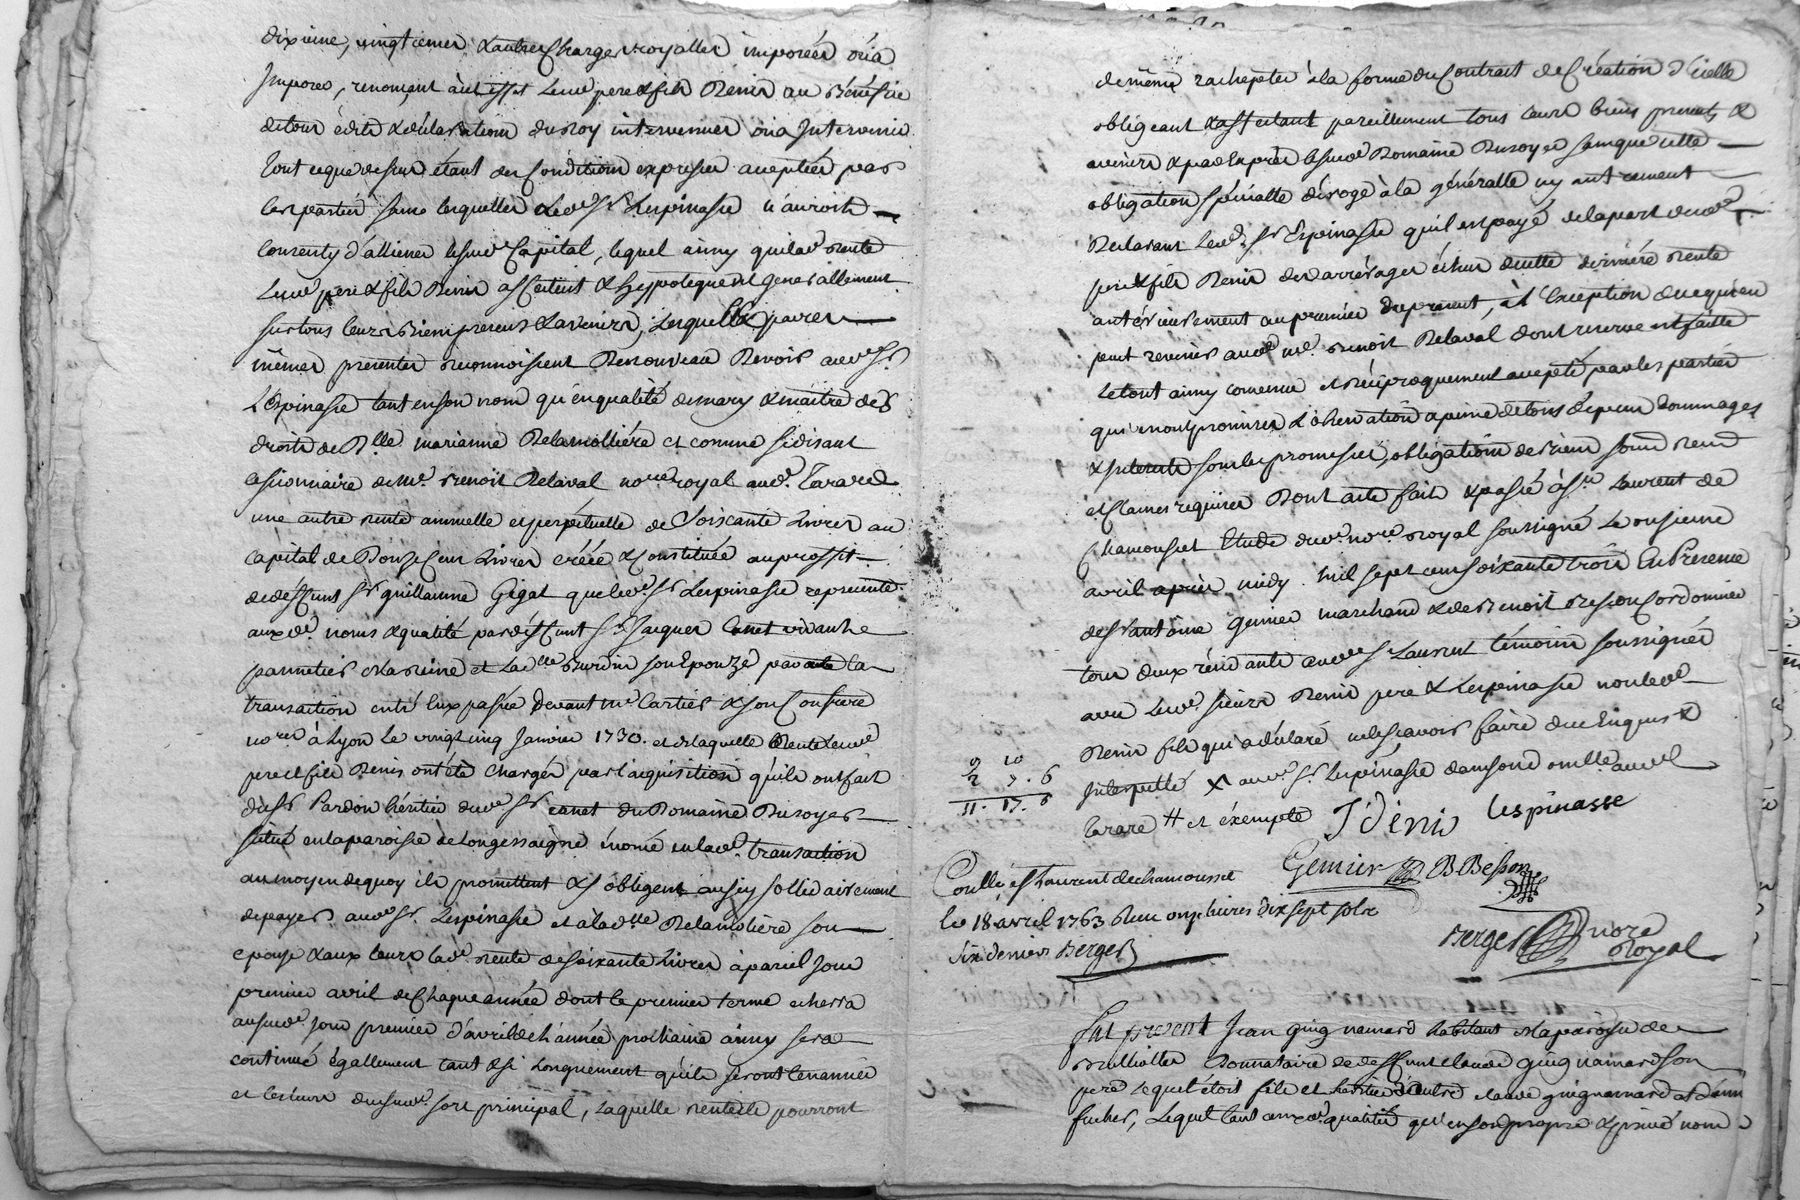 dixieme, vingtiemes & autres charges royalles imposées ou a
Imposer, renonçant à cet effet lesd. pere & fils Denis au Bénéfice
de tous édits & déclarations du Roy intervenues ou a Intervenir
Tout ce que dessus étant des Conditions expresses aceptées par
les parties sans lesquelles led. Sr Lespinasse n'auroit
consenty d'alliener lesusd. Capital, lequel ainsy que lad. rente
lesd. pere & fils Denis affectent & hyppotequent generallement
sur tous leurs Biens presens & avenirs, lesquelles parties
mêmes presentes reconnoissent de nouveau devoir aud. Sr.
Lespinasse tant en son nom qu'en qualité de mary & maitre des
droits de Dlle. marianne Delamolliére et comme se disant
cessionnaire de Me. Benoit Delaval nore royal aud. Tarare
une autre rente annuelle et perpétuelle de Soixante Livres au
capital de Douze Cent Livres créée & Constituée au proffit
de deffunt Sr guillaume Gigat que led. Sr Lespinasse represente
auxd. noms & qualité par deffunt Sr Jacques Canet
et lad. lle Burdin son Epouze par la
transaction entr'eux passée devant Me Cartier & son Confrere
nores à Lyon le vingt cinq Janvier 1730. et de laquelle Rente lesd.
pere et fils Denis ont été chargés par l'aquisition qu'ils ont fait
du Sr Pardon héritier dud. Sr Canet du Domaine Dusoyer
situé en la paroisse de Longessaigne énoncé en lad. transaction
au moyen de quoy ils promettent & s'obligent aussy sollidairement
de payer aud. Sr. Lespinasse et à lad. lle Delamoliére son
epouse & aux leurs lad. rente de soixante Livres à pareil Jour
premier avril de Chaque année dont le premier terme echerra
aususd. Jour premier d'avril de l'année prochaine ainsy sera
continué égallement tant & si Longuement qu'ils seront tenanciers
et debiteurs dususd. sort principal, laquelle rente ils pourront
de même racheptér à la forme du Contrat de Création d'icelle
obligeant & affectant pareillement tous leurs biens presents &
avenirs & par Exprès lesusd. Domaine Dusoyer sans que cette
obligation spécialle déroge à la généralle ny autrement
Declarant led. Sr Lespinasse qu'il est payé de la part desd.
pere & fils Denis des arrérages échus de cette derniére rente
antérieurement au premier du present, à l'Exception de ce qui en
peut revenir aud. Me. Benoit Delaval dont reserve est faitte
Le tout ainsy convenu et réciproquement acepté par les parties
qui en ont promis L'observation a peine de tous dépens Dommages
& Interets sous les promesses, obligations de Biens soumissions
et Clauses requises Dont acte fait & passé à St Laurent de
Chamousset Etude dud. nore. royal soussigné Le onsieme
avril après midy. mil sept cent soixante trois En Presence
de Sr antoine Gemier marchand & de Benoit Besson Cordonnier
tous deux résidants aud. St Laurent témoins soussignés
avec lesd. sieurs Denis pere & Lespinasse non led.
Denis fils qui a déclaré ne le sçavoir faire de ce Enquis &
Interpellé X aud. Sr. Lespinasse dans son domille. aud.
tarare # et éxempte J Denis Lespinasse
9 10
2 7. 6
11. 17. 6
Gemier B Besson
Conllé. a St Laurent de chamousset
le 18 avril 1763 Reçu onze livres dix sept sols
six deniers Berger
Berger nore
Royal
Fut present Jean guignamard habitant de la paroisse de
Brullioles Donnataire de deffunt claude guignamard son
pere lequel étoit fils et heritier d'autre claude guignamard
lequel tant auxd. qualités qu'en son propre & privé nom